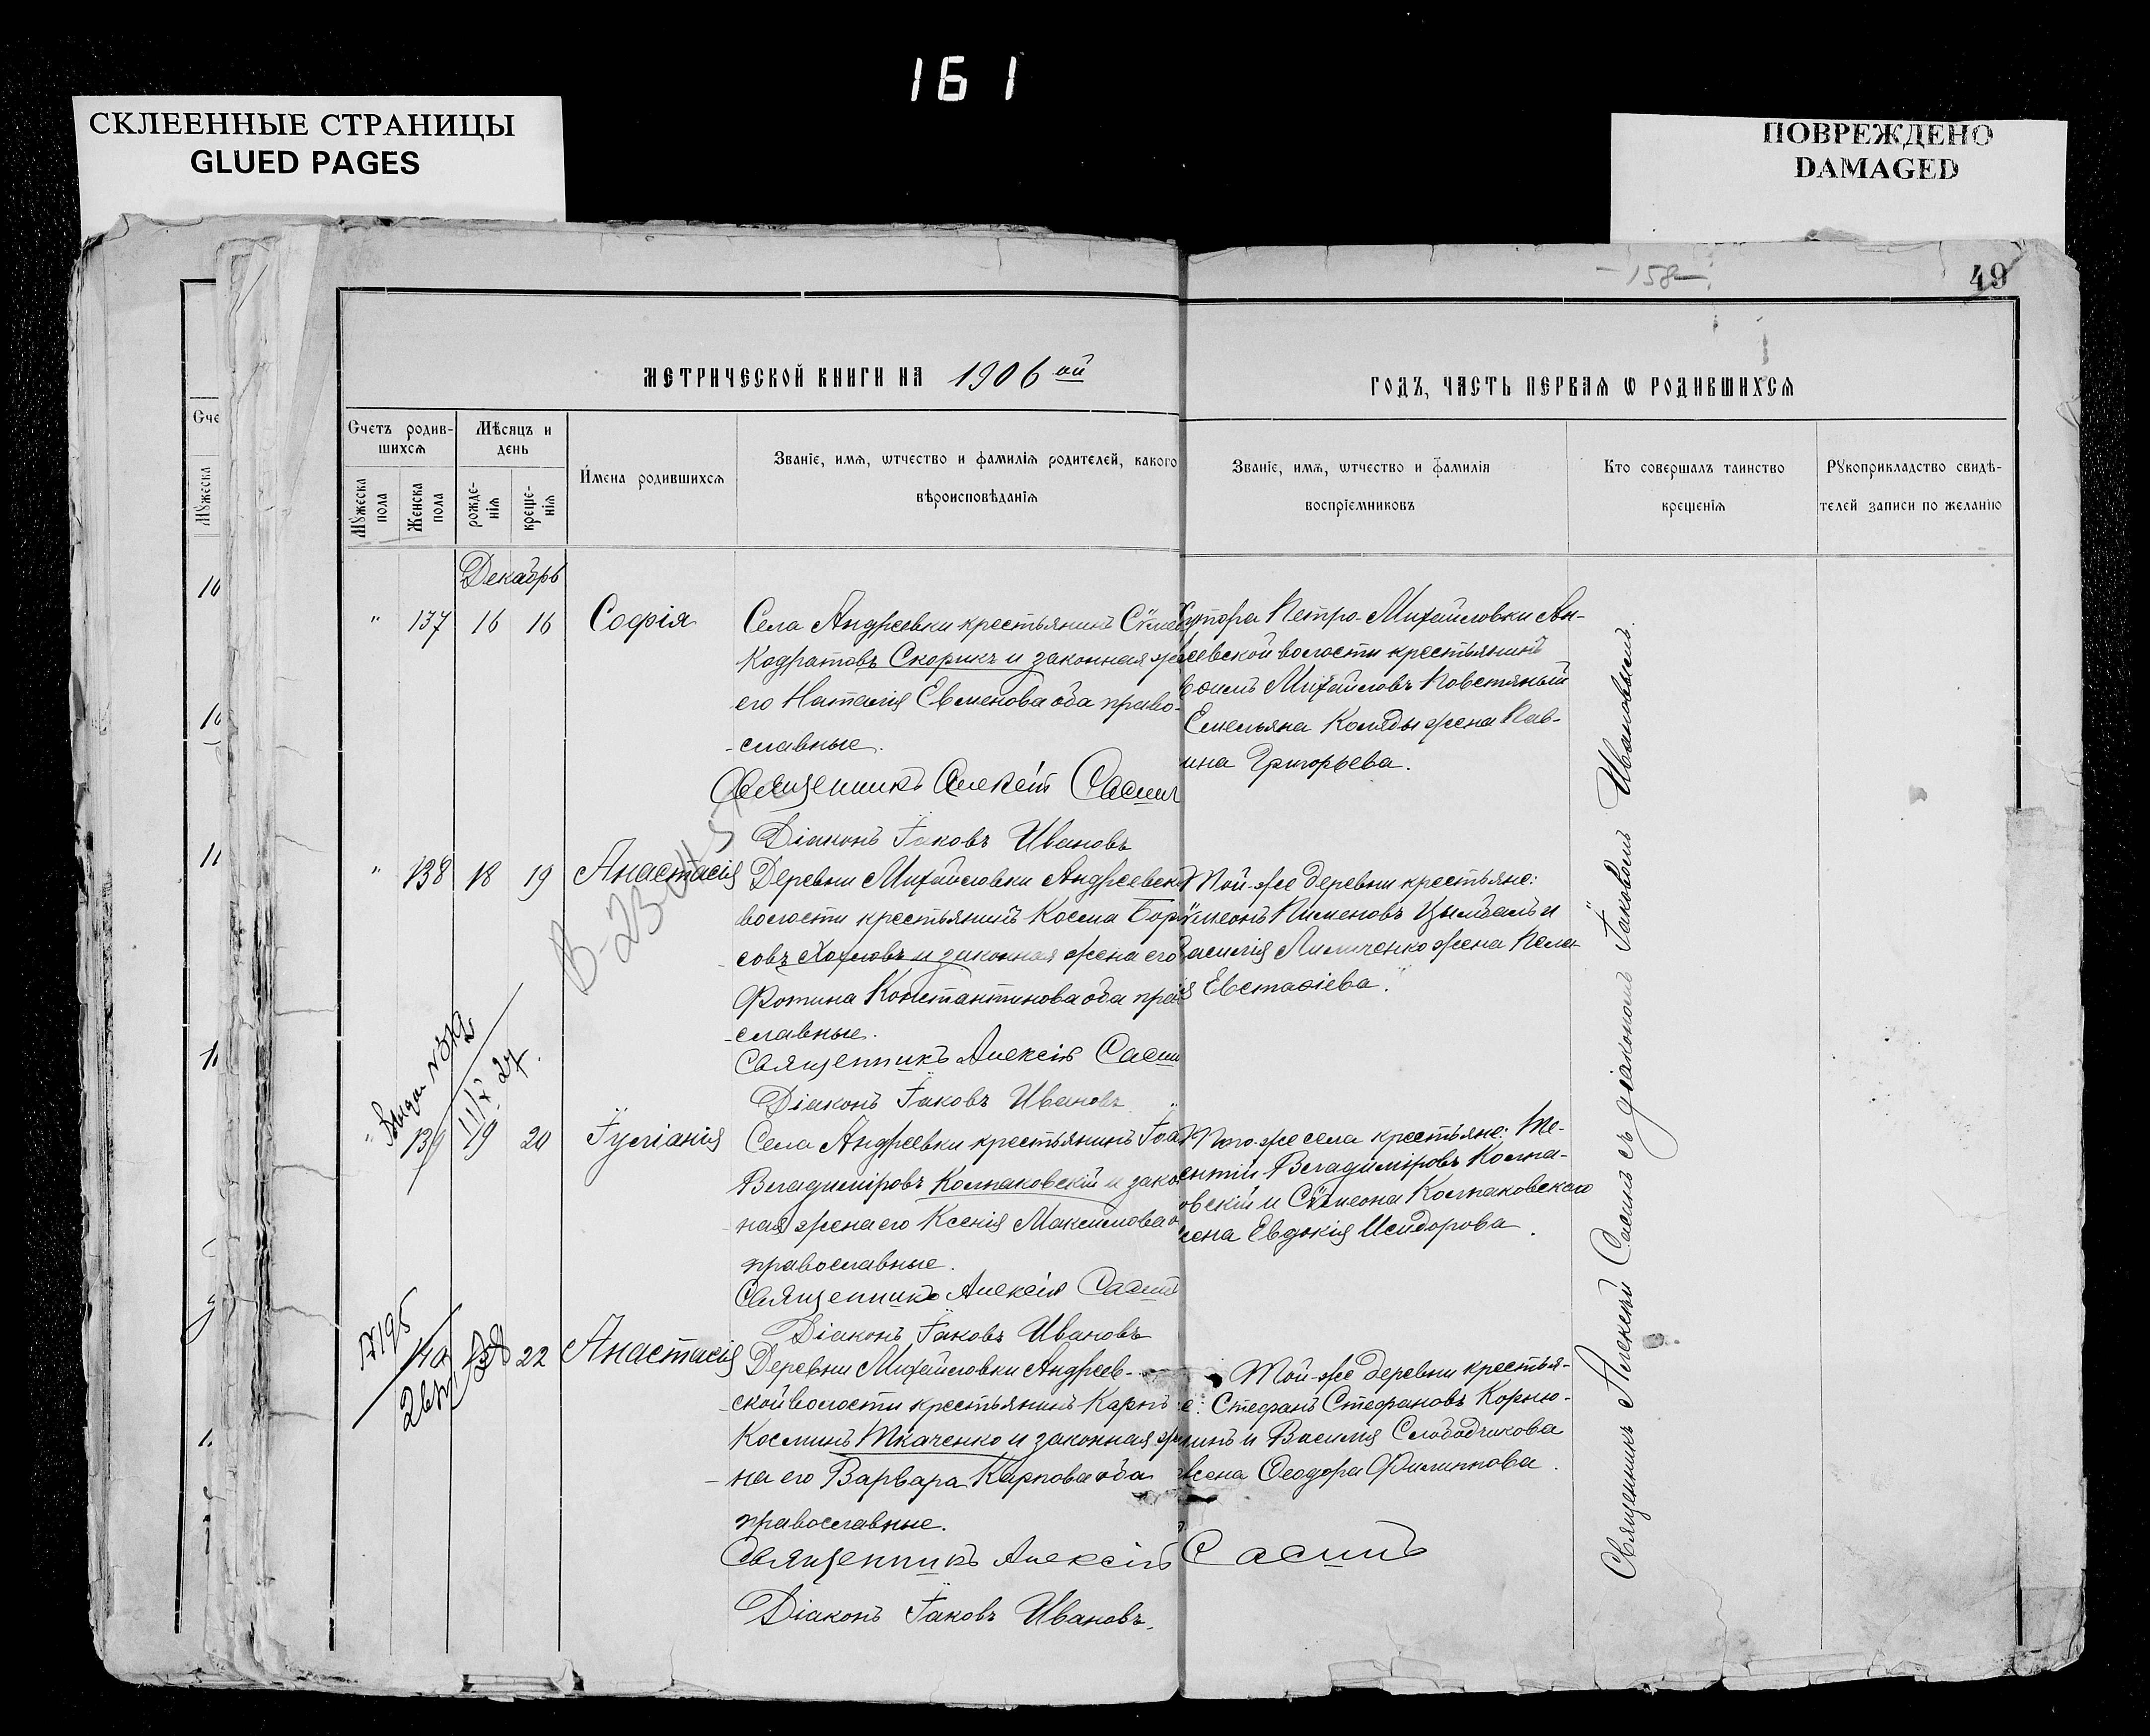 161
СКЛЕЕННЫЕ СТРАНИЦЫ
GLUED PAGES
ПОВРЕЖДЕНО
DAMAGED
-158-
49
МЕТРИЧЕСКОЙ КНИГИ НА 1906 ой
ГОДЪ, ЧАСТЬ ПЕРВАЯ Ѡ РОДИВШИХСЯ
Счетъ родив-
шихся
Мужеска пола
Женска пола
Мѣсяцъ и
день
рожде-
нія
креще-
нія
Имена родившихся
Званіе, имя, ѿтчество и фамилія родителей, какого
вѣроисповѣданія
Званіе, имя, ѿтчество и фамилія
воспріемниковъ
Кто совершалъ таинство
крещенія
Рукоприкладство свидѣ-
телей записи по желанію
Декабрь
" 137 16 16 Софія
Села Андреевки крестьянинъ
Кодратовъ Скорикъ и законная
его Наталія Евменова оба право-
-славные.
Священникъ Алексій
Діаконъ Іаковъ Ивановъ
Петро-Михайловки Ан-
волости крестьянинъ
Михайловъ Повстяный
Емельяна Коляды жена Пав-
ина Григорьева.
" 138 18 19 Анастасія
Деревни Михайловки
волости крестьянинъ Косма Бор
совъ Хохловъ и законная жена его
Фотина Константинова оба
-славные.
Священникъ Алексій
Діаконъ Іаковъ Ивановъ
Той-же деревни крестьяне:
Пименовъ Цымбалъ и
жена Пела
Евстафіева.
" 139 19 20 Іуліанія
Села Андреевки крестьянинъ
Владиміровъ Колпаковскій и зако
ная жена его Ксенія Максимова
православные.
Священникъ Алексій
Діаконъ Іаковъ Ивановъ
Того-же села крестьяне: Те-
ентій Владиміровъ Колпа-
овскій и Сѵмеона Колпаковскаго
жена Евдокія Исидорова.
N195
140 22 Анастасія
Деревни Михайловки Андреев-
ской волости крестьянинъ Карпъ
Косминъ Ткаченко и законная
на его Варвара Карпова оба
православные.
Священникъ Алексій
Діаконъ Іаковъ Ивановъ.
Той-же деревни крестья-
е: Стефанъ Стефановъ Корню-
и Василія Слободчикова
жена Ѳеодора Филиппова.
Священникъ Алексій съ діакономъ Іаковомъ Ивановымъ.